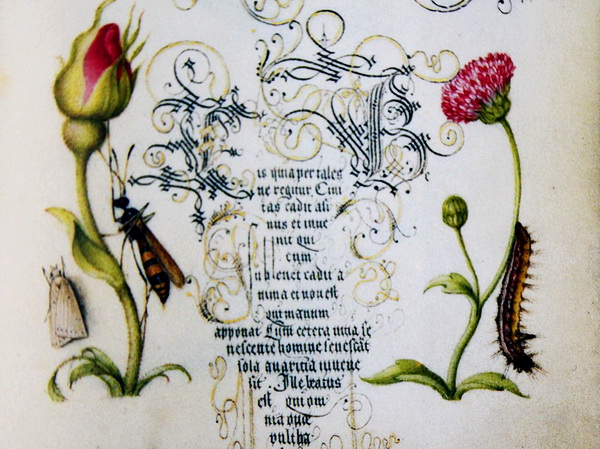 is quia per tales
ne regitur. Ciui
tas cadit asi
nus et inue
nit qui
eum
subleuet cadit a
nima et non est
qui manum
apponat. Cum cetera uitia se
nescente homine senescāt
sola auaritia iuuene
scit. Ille beatus
est qui om
nia quae
vult ha